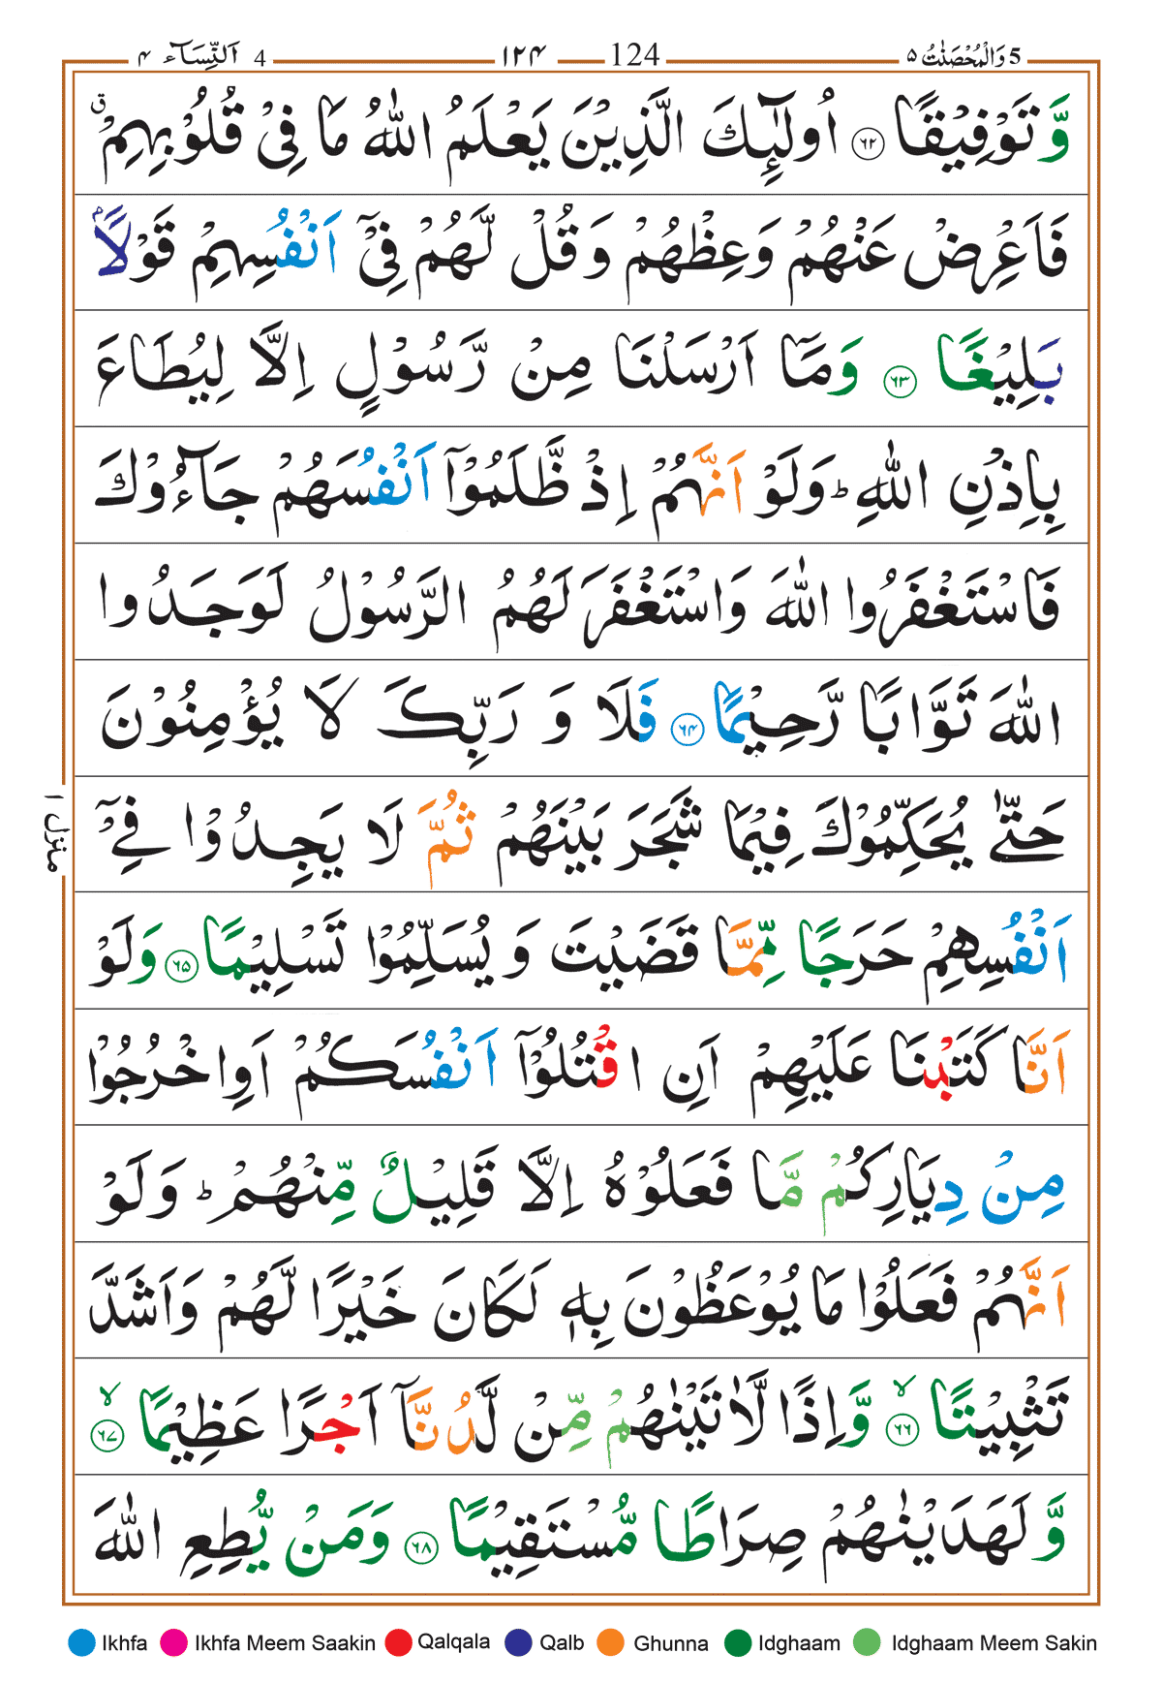 4 اَلنِّسَآء ۴ ۱۲۴ 124 5 وَالْمُحْصَنٰتُ ۵
وَّ تَوْفِيْقًا ۶۲ اُولٰٓئِكَ الَّذِيْنَ يَعْلَمُ اللّٰهُ مَا فِيْ قُلُوْبِهِمْ ۗ ق
فَاَعْرِضْ عَنْهُمْ وَعِظْهُمْ وَقُلْ لَّهُمْ فِيْۤ اَنْفُسِهِمْ قَوْلًاۢ
بَلِيْغًا ۶۳ وَمَاۤ اَرْسَلْنَا مِنْ رَّسُوْلٍ اِلَّا لِيُطَاعَ
بِاِذْنِ اللّٰهِ ؕ وَلَوْ اَنَّهُمْ اِذْ ظَّلَمُوْۤا اَنْفُسَهُمْ جَآءُوْكَ
فَاسْتَغْفَرُوا اللّٰهَ وَاسْتَغْفَرَ لَهُمُ الرَّسُوْلُ لَوَجَدُوا
اللّٰهَ تَوَّابًا رَّحِيْمًا ۶۴ فَلَا وَ رَبِّكَ لَا يُؤْمِنُوْنَ
حَتّٰى يُحَكِّمُوْكَ فِيْمَا شَجَرَ بَيْنَهُمْ ثُمَّ لَا يَجِدُوْا فِيْۤ
اَنْفُسِهِمْ حَرَجًا مِّمَّا قَضَيْتَ وَ يُسَلِّمُوْا تَسْلِيْمًا ۶۵ وَلَوْ
اَنَّا كَتَبْنَا عَلَيْهِمْ اَنِ اقْتُلُوْۤا اَنْفُسَكُمْ اَوِاخْرُجُوْا
مِنْ دِيَارِكُمْ مَّا فَعَلُوْهُ اِلَّا قَلِيْلٌ مِّنْهُمْ ؕ وَلَوْ
اَنَّهُمْ فَعَلُوْا مَا يُوْعَظُوْنَ بِهٖ لَكَانَ خَيْرًا لَّهُمْ وَاَشَدَّ
تَثْبِيْتًا ۙ ۶۶ وَّاِذًا لَّاٰتَيْنٰهُمْ مِّنْ لَّدُنَّاۤ اَجْرًا عَظِيْمًا ۙ ۶۷
وَّ لَهَدَيْنٰهُمْ صِرَاطًا مُّسْتَقِيْمًا ۶۸ وَمَنْ يُّطِعِ اللّٰهَ
منزل ۱
Ikhfa Ikhfa Meem Saakin Qalqala Qalb Ghunna Idghaam Idghaam Meem Sakin